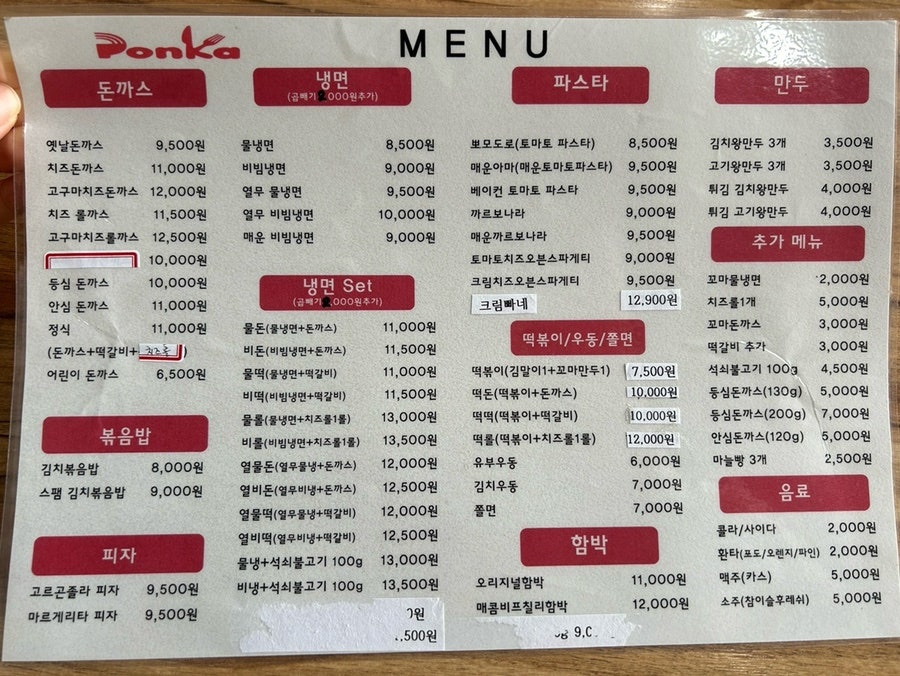 Donka
MENU
돈까스
옛날돈까스 9,500원
치즈돈까스 11,000원
고구마치즈돈까스 12,000원
치즈 롤까스 11,500원
고구마치즈롤까스 12,500원
10,000원
등심 돈까스 10,000원
안심 돈까스 11,000원
정식 11,000원
(돈까스+떡갈비+치즈롤)
어린이 돈까스 6,500원
볶음밥
김치볶음밥 8,000원
스팸 김치볶음밥 9,000원
피자
고르곤졸라 피자 9,500원
마르게리타 피자 9,500원
냉면
(곱빼기2,000원추가)
물냉면 8,500원
비빔냉면 9,000원
열무 물냉면 9,500원
열무 비빔냉면 10,000원
매운 비빔냉면 9,000원
냉면 Set
(곱빼기2,000원추가)
물돈(물냉면+돈까스) 11,000원
비돈(비빔냉면+돈까스) 11,500원
물떡(물냉면+떡갈비) 11,000원
비떡(비빔냉면+떡갈비) 11,500원
물롤(물냉면+치즈롤1롤) 13,000원
비롤(비빔냉면+치즈롤1롤) 13,500원
열물돈(열무물냉+돈까스) 12,000원
열비돈(열무비냉+돈까스) 12,500원
열물떡(열무물냉+떡갈비) 12,000원
열비떡(열무비냉+떡갈비) 12,500원
물냉+석쇠불고기 100g 13,000원
비냉+석쇠불고기 100g 13,500원
원
,500원
파스타
뽀모도로(토마토 파스타) 8,500원
매운아마(매운토마토파스타) 9,500원
베이컨 토마토 파스타 9,500원
까르보나라 9,000원
매운까르보나라 9,500원
토마토치즈오븐스파게티 9,000원
크림치즈오븐스파게티 9,500원
크림빠네 12,900원
떡볶이/우동/쫄면
떡볶이(김말이1+꼬마만두1) 7,500원
떡돈(떡볶이+돈까스) 10,000원
떡떡(떡볶이+떡갈비) 10,000원
떡롤(떡볶이+치즈롤1롤) 12,000원
유부우동 6,000원
김치우동 7,000원
쫄면 7,000원
함박
오리지널함박 11,000원
매콤비프칠리함박 12,000원
만두
김치왕만두 3개 3,500원
고기왕만두 3개 3,500원
튀김 김치왕만두 4,000원
튀김 고기왕만두 4,000원
추가 메뉴
꼬마물냉면 2,000원
치즈롤1개 5,000원
꼬마돈까스 3,000원
떡갈비 추가 3,000원
석쇠불고기 100g 4,500원
등심돈까스(130g) 5,000원
등심돈까스(200g) 7,000원
안심돈까스(120g) 5,000원
마늘빵 3개 2,500원
음료
콜라/사이다 2,000원
환타(포도/오렌지/파인) 2,000원
맥주(카스) 5,000원
소주(참이슬후레쉬) 5,000원